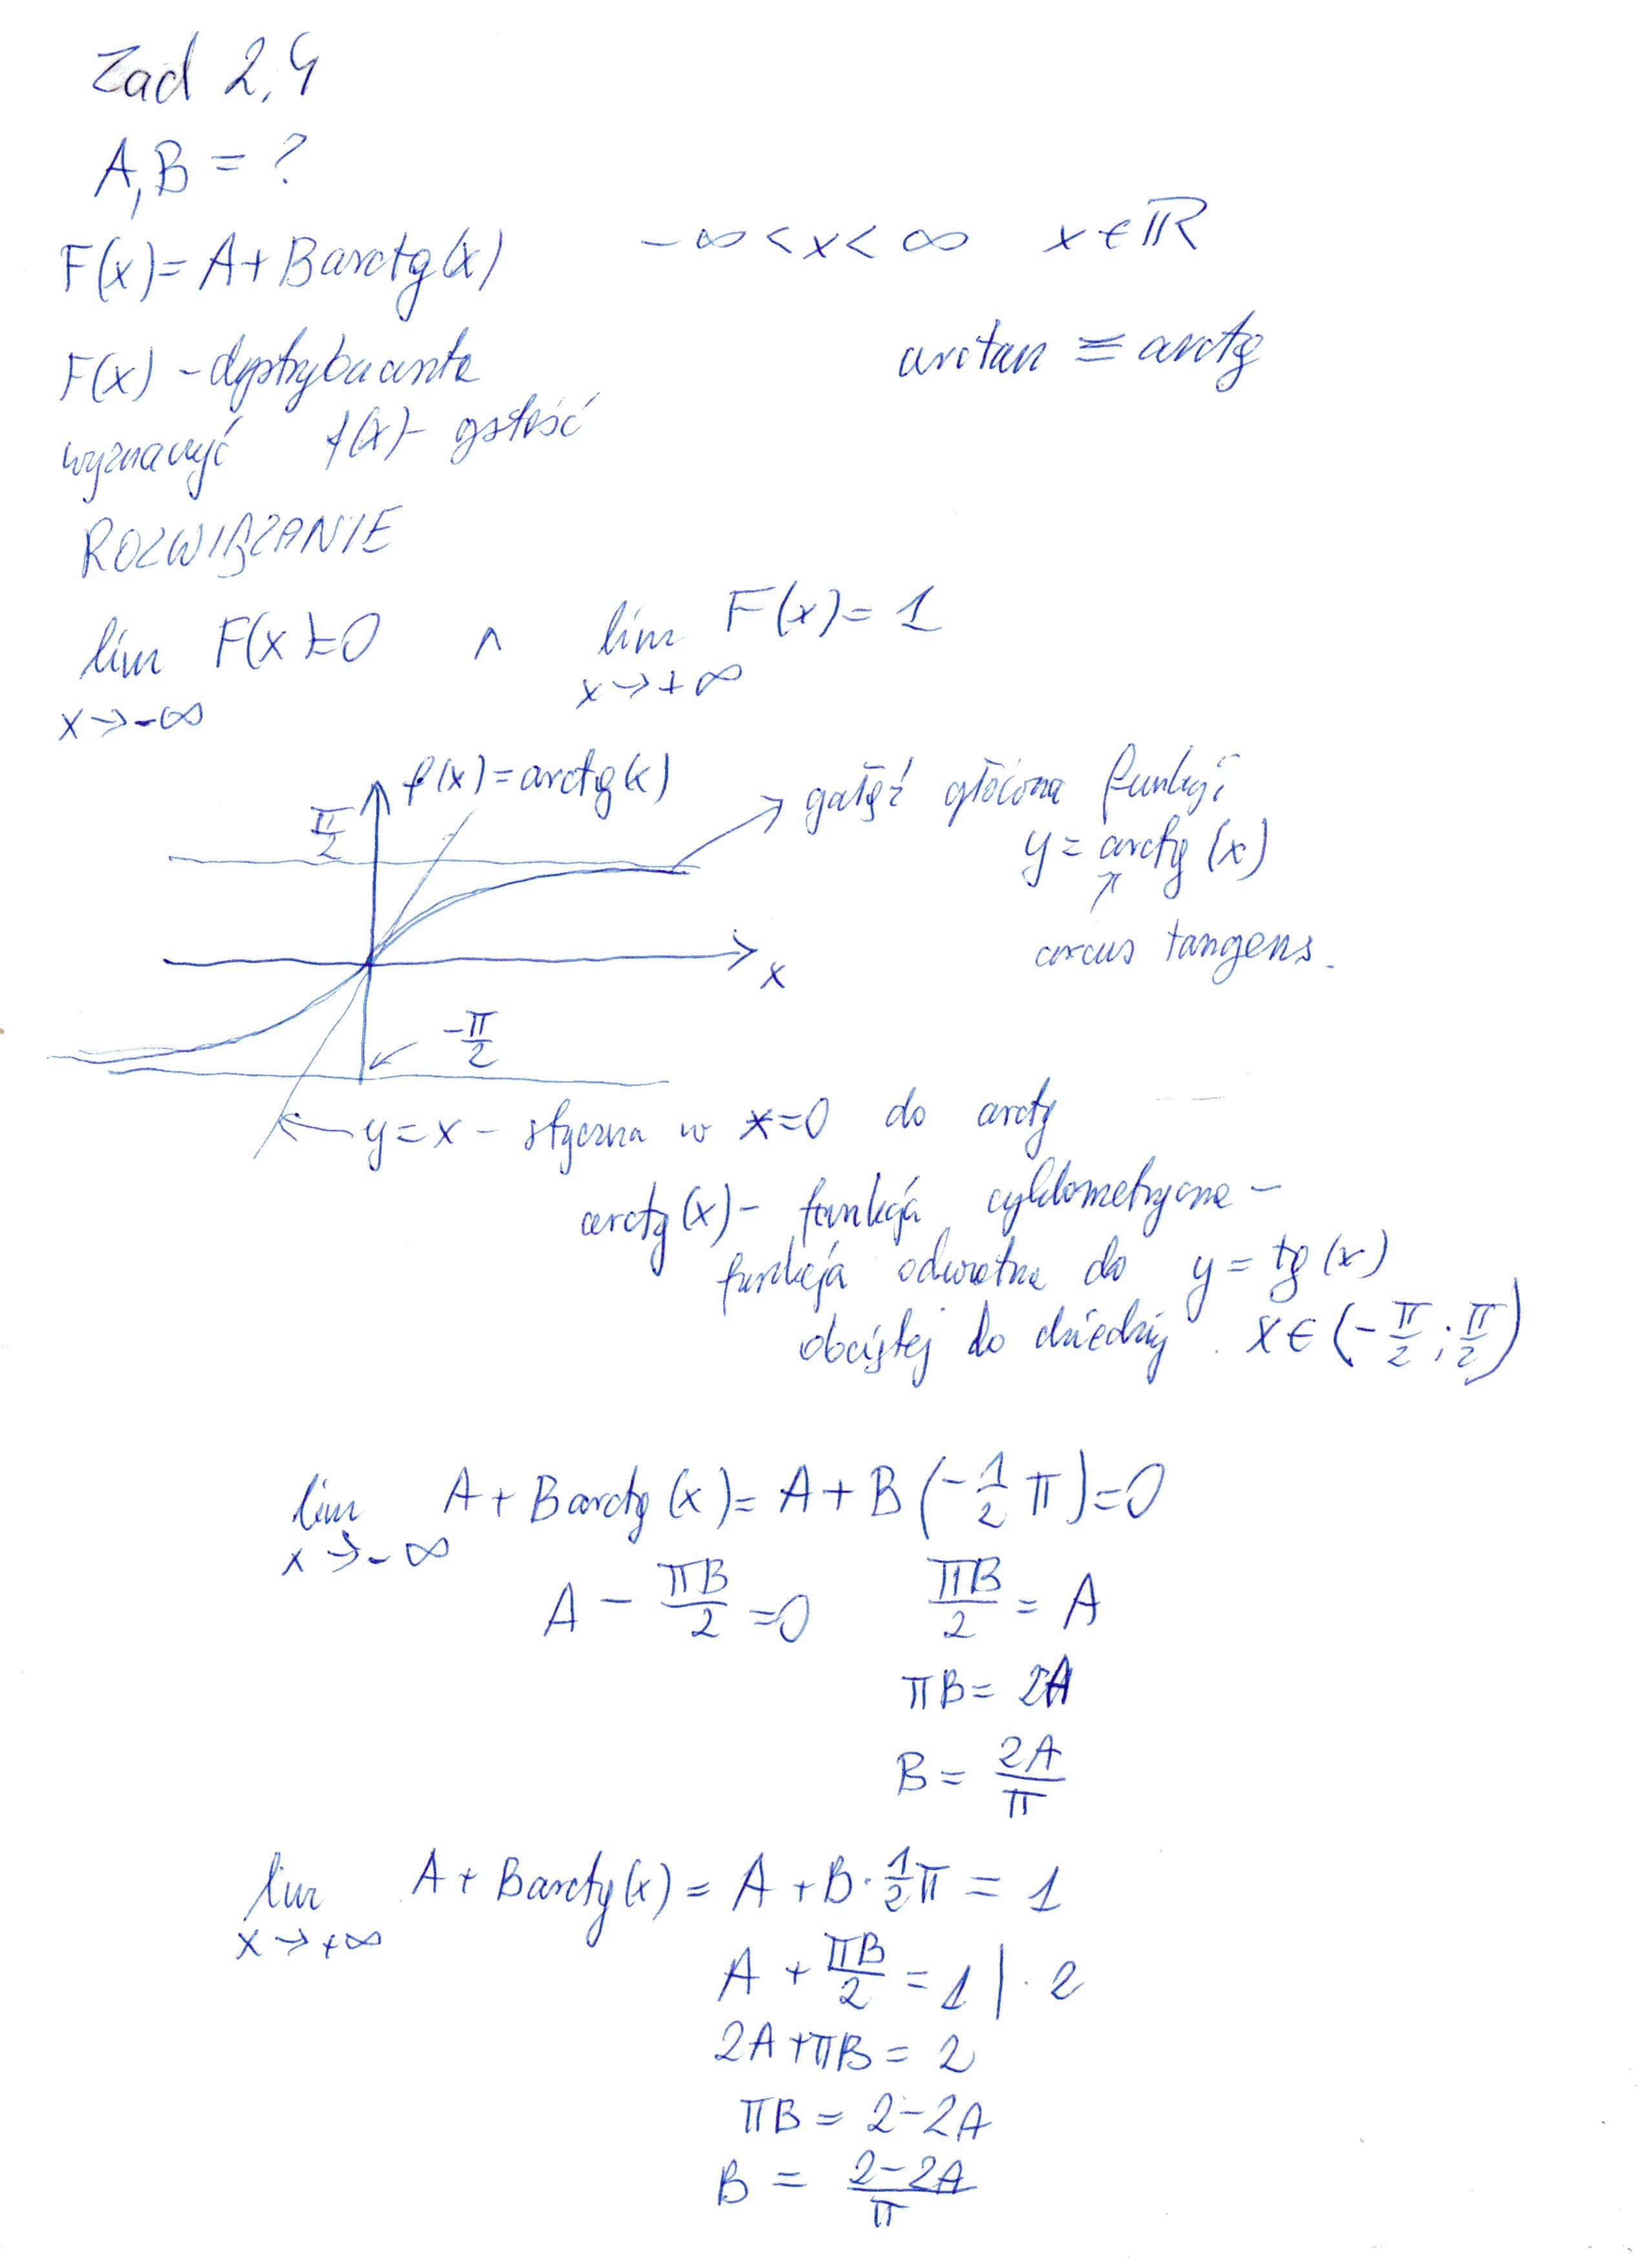 Zad 2,4
A,B = ?
F(x)= A+ B arctg(x)    -∞ < x < ∞    x ∈ ℝ
F(x) - dystrybuanta    arctan ≡ arctg
wyznaczyć f(x)- gstość
ROZWIĄZANIE
lim F(x)=0 ∧ lim F(x)= 1
x→-∞    x→+∞
f(x)=arctg(x)
π/2
gałęź główna funkcji
y = arctg (x)
↑
arcus tangens.
x
-π/2
y=x - styczna w x=0 do arctg
arctg(x)- funkcja cyklometryczna -
funkcja odwrotna do y = tg(x)
obciętej do dziedziny x ∈ (-π/2 ; π/2)
lim A+ B arctg(x)= A + B (-1/2 π)=0
x→-∞
A - πB/2 =0    πB/2 = A
πB= 2A
B= 2A/π
lim A+ B arctg(x)= A +B·1/2π = 1
x→+∞
A + πB/2 = 1 |·2
2A+πB= 2
πB= 2-2A
B = 2-2A/π